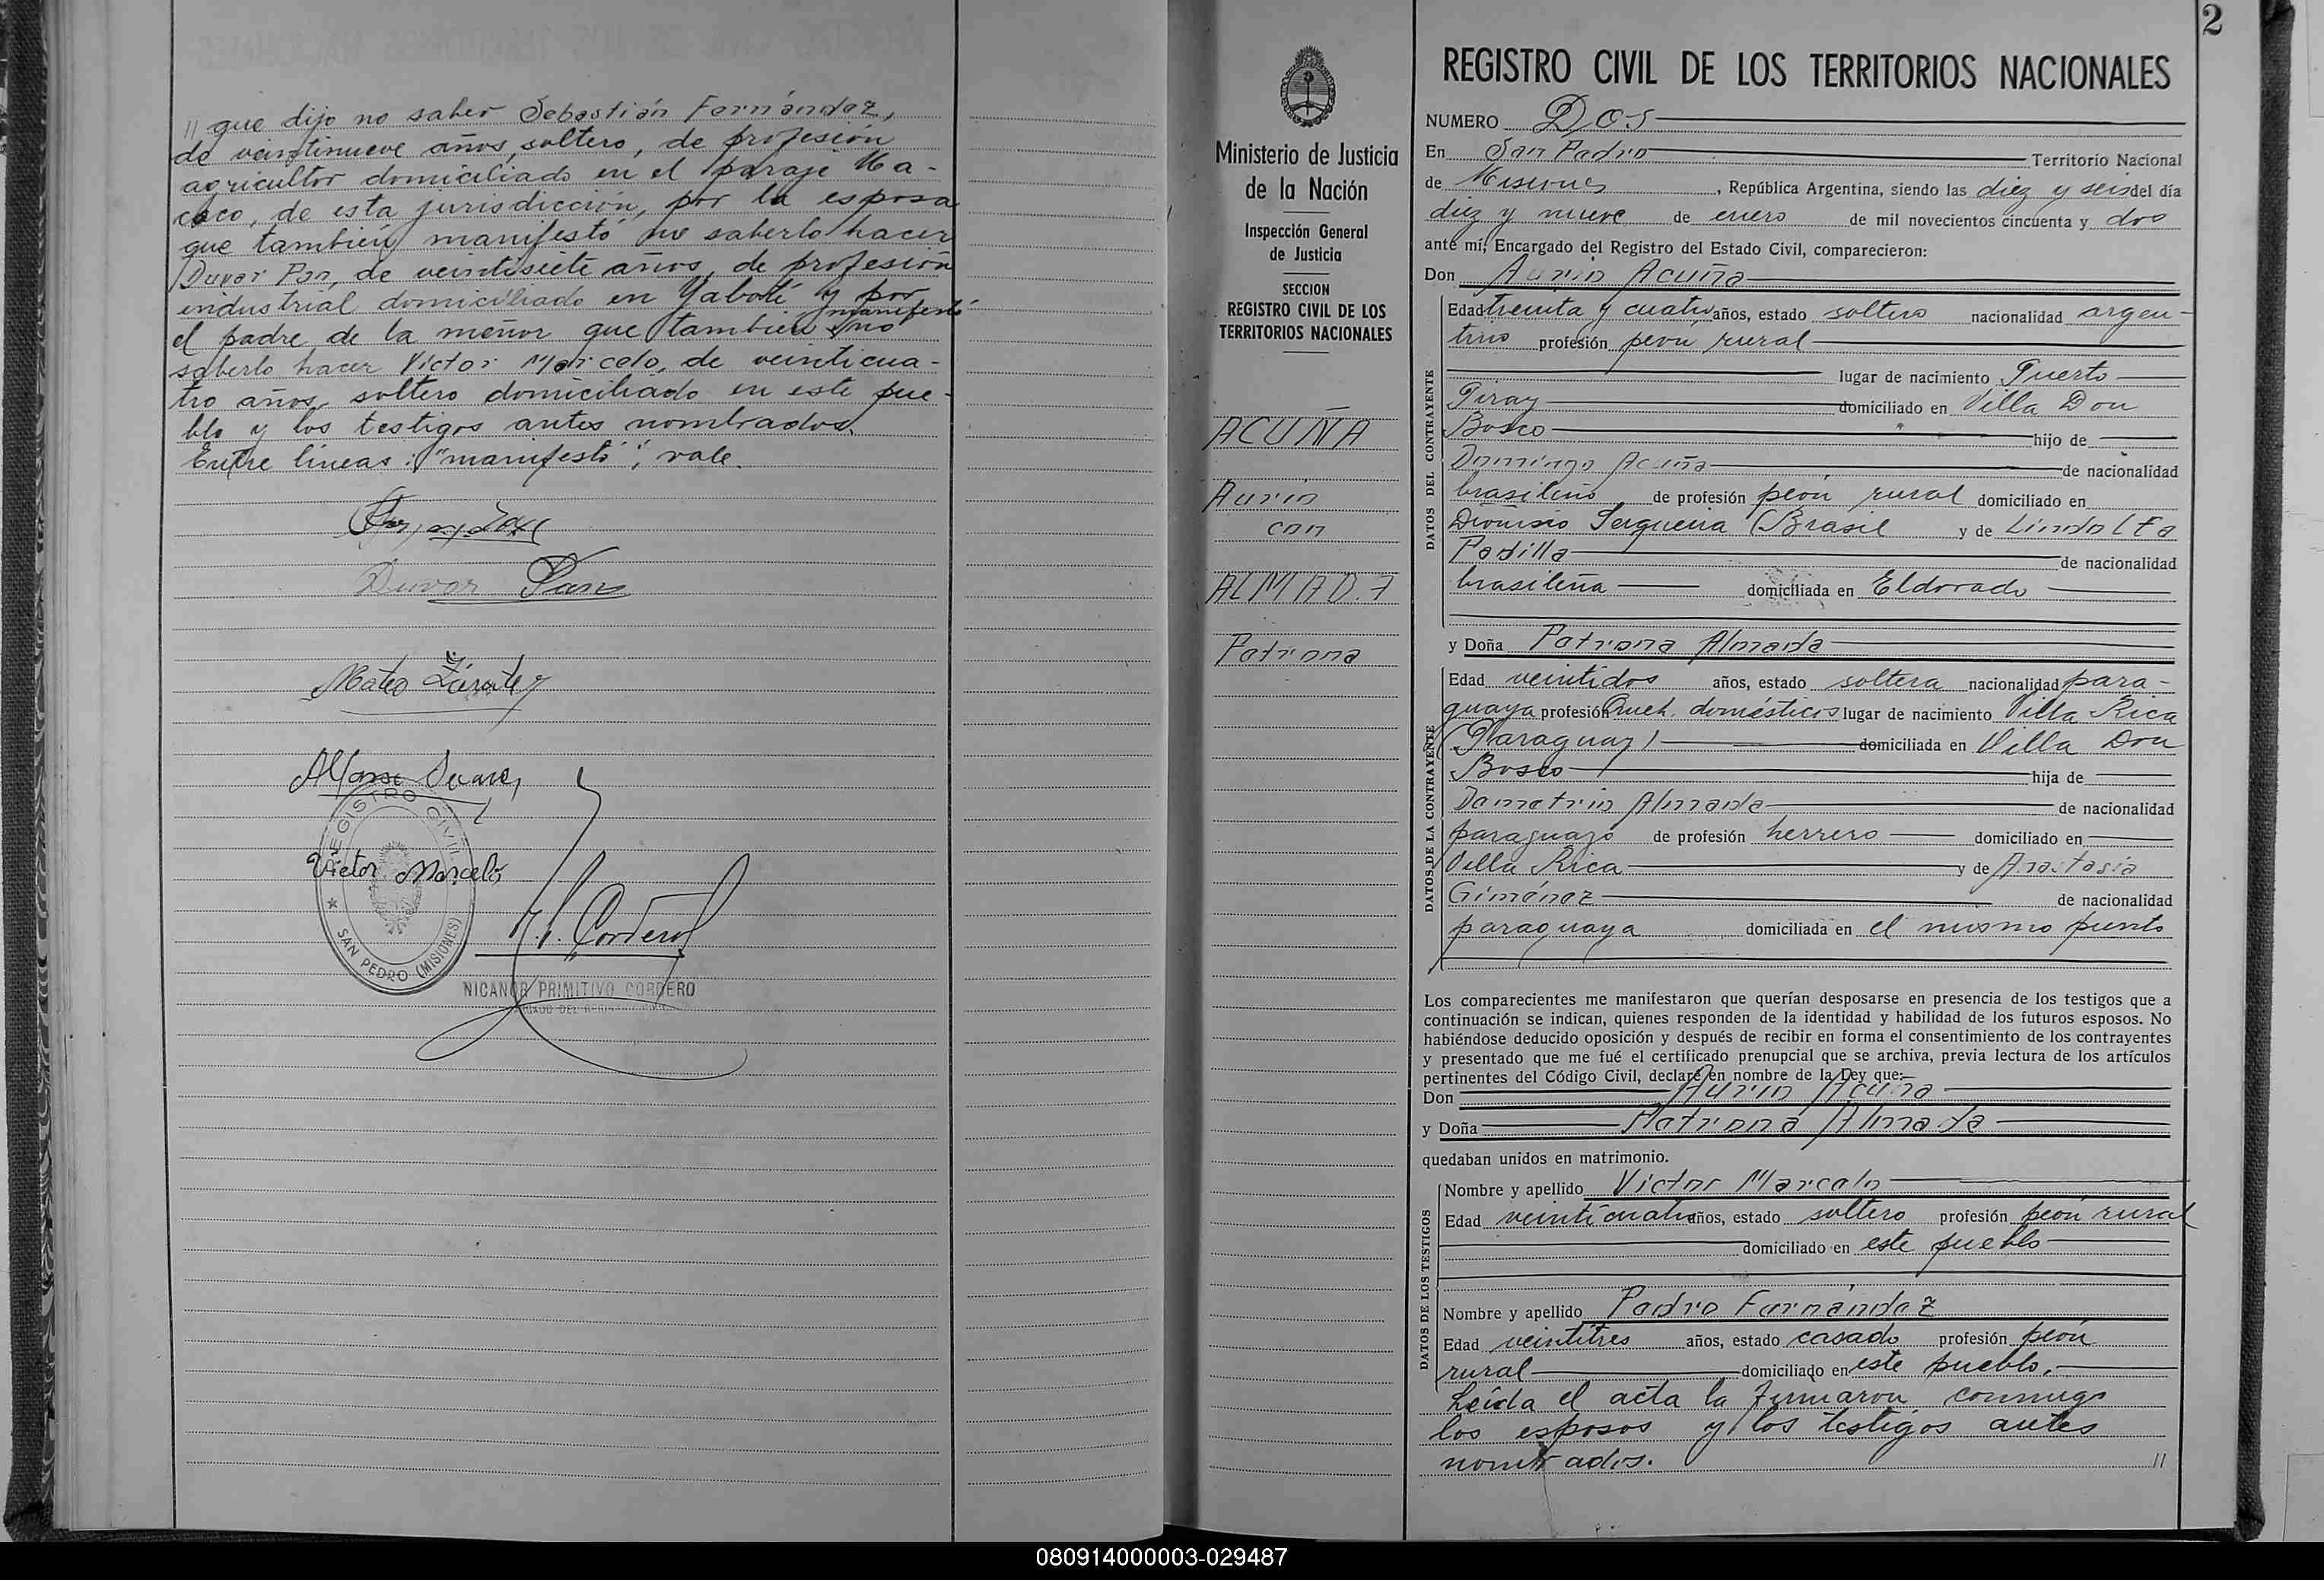 // que dijo no saber Sebastián Fernández,
de veintinueve años, soltero, de profesión
agricultor domiciliado en el paraje Ma-
caco, de esta jurisdicción, por la esposa
que también manifestó no saberlo hacer
Duvar Pan, de veintisiete años, de profesión
industrial domiciliado en Yabotí y por
el padre de la menor que también manifestó no
saberlo hacer Víctor Marcelo, de veinticua-
tro años, soltero domiciliado en este pue-
blo y los testigos antes nombrados.
Entre líneas: "manifestó", vale.
Duvar
Mateo Zárate
Alfonso Suarez
REGISTRO CIVIL
Victor Marcelo
SAN PEDRO (MISIONES)
N.P. Cordero
NICANOR PRIMITIVO CORDERO
2
Ministerio de Justicia
de la Nación
Inspección General
de Justicia
SECCION
REGISTRO CIVIL DE LOS
TERRITORIOS NACIONALES
ACUÑA
Aurio
con
ALMADA
Petrona
REGISTRO CIVIL DE LOS TERRITORIOS NACIONALES
NUMERO Dos
En San Pedro Territorio Nacional
de Misiones, República Argentina, siendo las diez y seis del día
diez y nueve de enero de mil novecientos cincuenta y dos
ante mí, Encargado del Registro del Estado Civil, comparecieron:
Don Aurio Acuña
DATOS DEL CONTRAYENTE
Edad treinta y cuatro años, estado soltero nacionalidad argen-
tino profesión peon rural
lugar de nacimiento Puerto
Piray domiciliado en Villa Don
Bosco hijo de
Domingo Acuña de nacionalidad
brasileño de profesión peón rural domiciliado en
Dionisio Serqueira (Brasil y de Lindolfa
Padilla de nacionalidad
brasileña domiciliada en Eldorado
y Doña Petrona Almada
DATOS DE LA CONTRAYENTE
Edad veintidos años, estado soltera nacionalidad para-
guaya profesión Queh. domésticos lugar de nacimiento Villa Rica
(Paraguay) domiciliada en Villa Don
Bosco hija de
Demetrio Almada de nacionalidad
paraguayo de profesión herrero domiciliado en
Villa Rica y de Anastasia
Giménez de nacionalidad
paraguaya domiciliada en el mismo punto
Los comparecientes me manifestaron que querían desposarse en presencia de los testigos que a
continuación se indican, quienes responden de la identidad y habilidad de los futuros esposos. No
habiéndose deducido oposición y después de recibir en forma el consentimiento de los contrayentes
y presentado que me fué el certificado prenupcial que se archiva, previa lectura de los artículos
pertinentes del Código Civil, declaré en nombre de la Ley que:
Don Aurio Acuña
y Doña Petrona Almada
quedaban unidos en matrimonio.
DATOS DE LOS TESTIGOS
Nombre y apellido Victor Marcelo
Edad veinticuatro años, estado soltero profesión peón rural
domiciliado en este pueblo
Nombre y apellido Pedro Fernández
Edad veintitres años, estado casado profesión peón
rural domiciliado en este pueblo.
Leída el acta la firmaron conmigo
los esposos y los testigos antes
nombrados. //
080914000003-029487